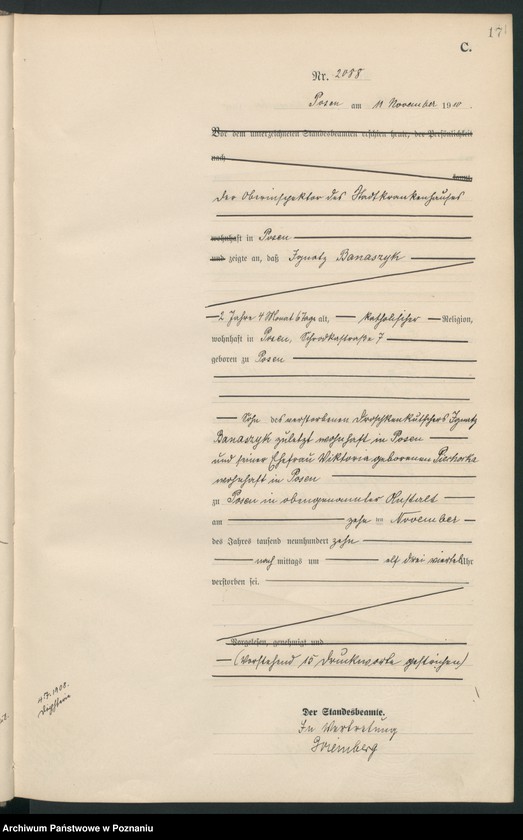 171
C.
Nr. 2088
Posen am 11 November 1910.
Vor dem unterzeichneten Standesbeamten erschien heute, der Persönlichkeit
nach
kannt,
der Oberinspektor des Stadtkrankenhauses
wohnhaft in Posen
und zeigte an, daß Ignatz Banaszyk
2 Jahre 4 Monat 6 Tage alt, katholischer Religion,
wohnhaft in Posen, Schrodkastraße 7
geboren zu Posen
Sohn des verstorbenen Droschkenkutschers Ignatz
Banaszyk zuletzt wohnhaft in Posen
und seiner Ehefrau Viktoria geborenen
wohnhaft in Posen
zu Posen in obengenannter Anstalt
am zehnten November
des Jahres tausend neunhundert zehn
nach mittags um elf drei viertel Uhr
verstorben sei.
Vorgelesen, genehmigt und
(Vorstehend 15 Druckworte gestrichen)
Der Standesbeamte.
In Vertretung
Archiwum Państwowe w Poznaniu